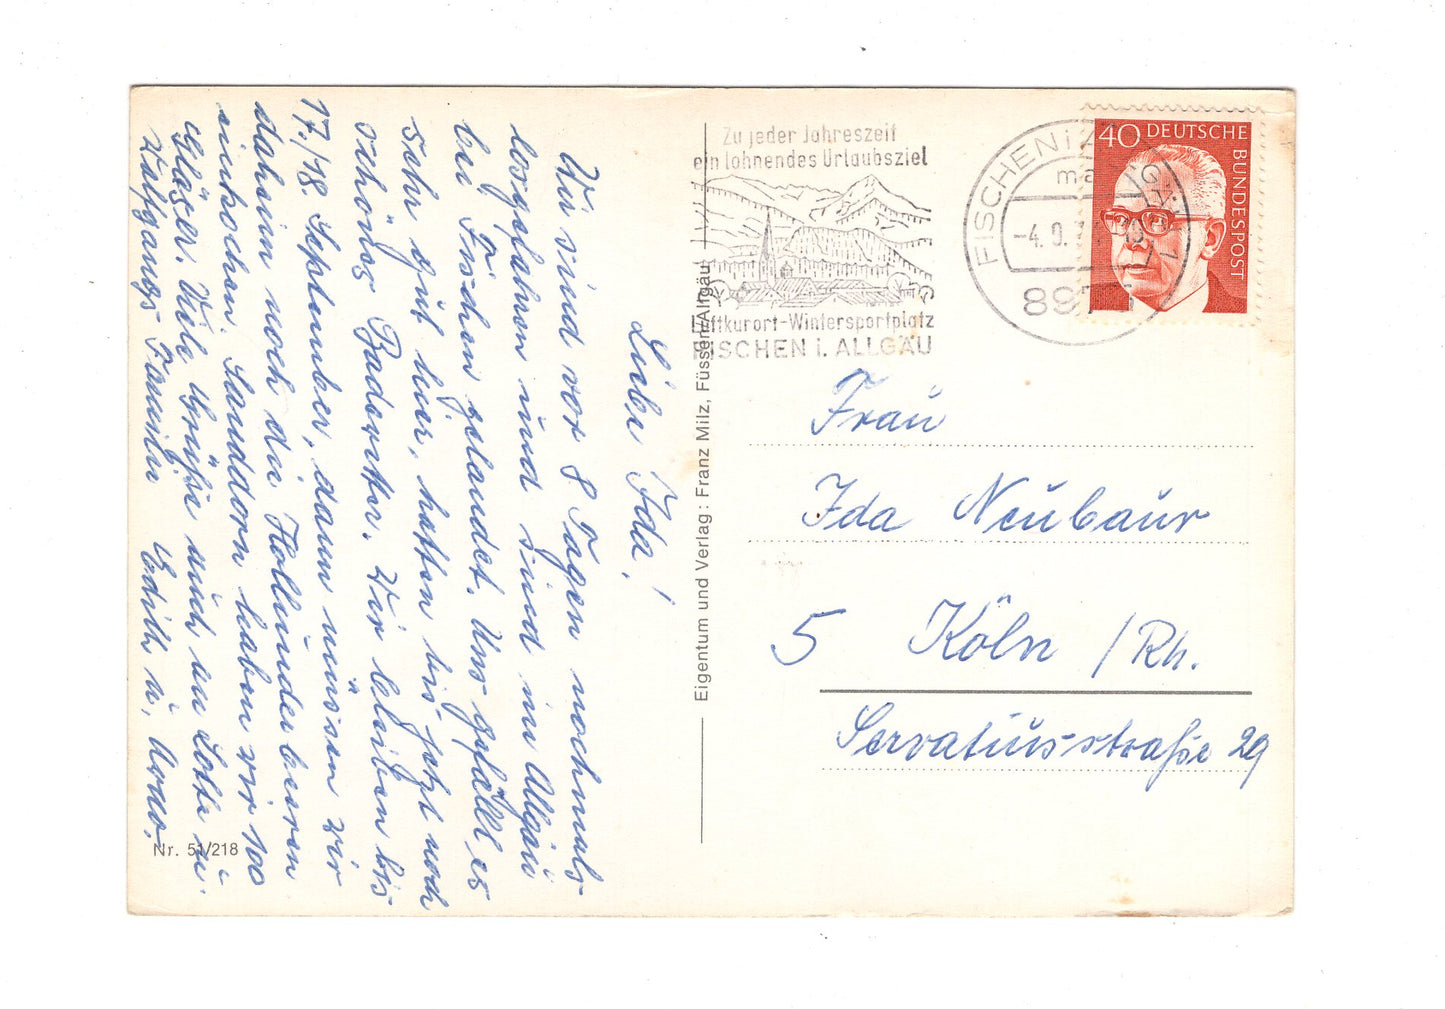 Liebe Ida!
Wir sind vor 8 Tagen nochmals
losgefahren und sind im Allgäu
bei Fischen gelandet. Uns gefällt es
sehr gut hier, hatten bis jetzt noch
schönes Badewetter. Wir bleiben bis
17./18. September, dann müssen wir
daheim noch die Hollunderbeeren
einkochen. Sanddorn haben wir 100
Gläser. Viele Grüße auch an Lotte u.
Wolfgangs Familie Edith u.
Nr. 51/218
Eigentum und Verlag: Franz Milz, Füssen/Allgäu
Zu jeder Jahreszeit
ein lohnendes Urlaubsziel
Luftkurort-Wintersportplatz
FISCHEN i. ALLGÄU
FISCHEN i
-4.9.7
897
40 DEUTSCHE
BUNDESPOST
Frau
Ida Neubaur
5 Köln /Rh.
Servatiusstraße 29